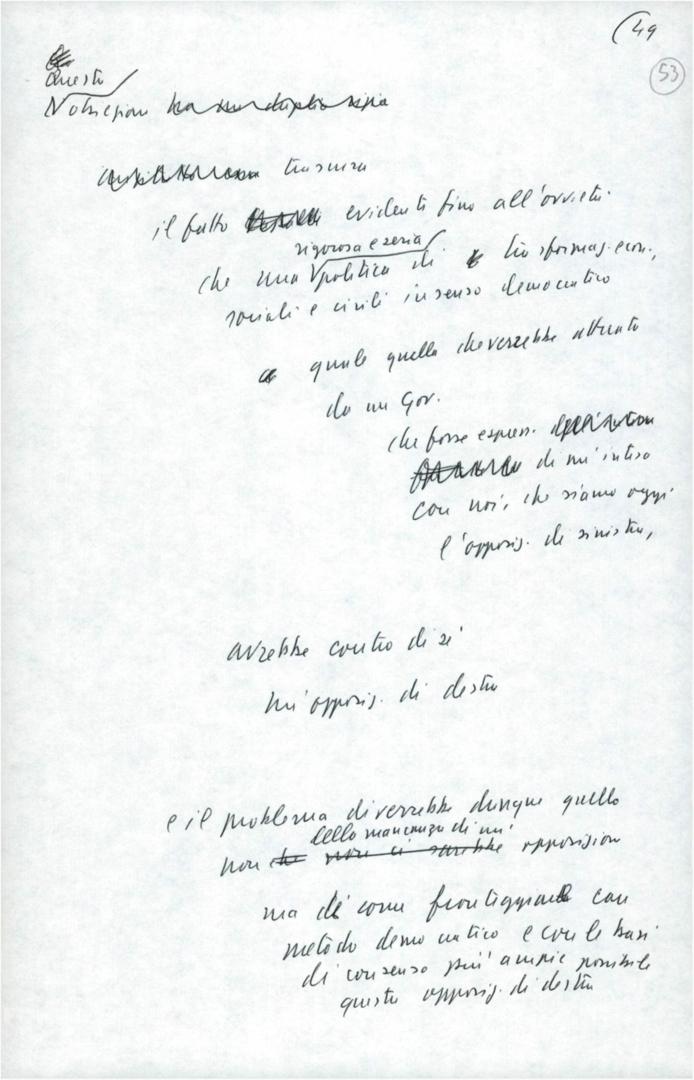 (49
53
Questa
obiezione
trascura
il fatto evidente fino all'ovvietà
rigorosa e seria
che una politica di trasformaz. econ.,
sociali e civili in senso democratico
quale quella che verrebbe attuata
da un Gov.
che fosse espress.
di un'intesa
con noi, che siamo oggi
l'opposiz. di sinistra,
avrebbe contro di sé
un'opposiz. di destra
e il problema diverrebbe dunque quello
della mancanza di un'
non che non ci sarebbe opposizione
ma di come fronteggiare con
metodo democratico e con le basi
di consenso più ampie possibile
questa opposiz. di destra